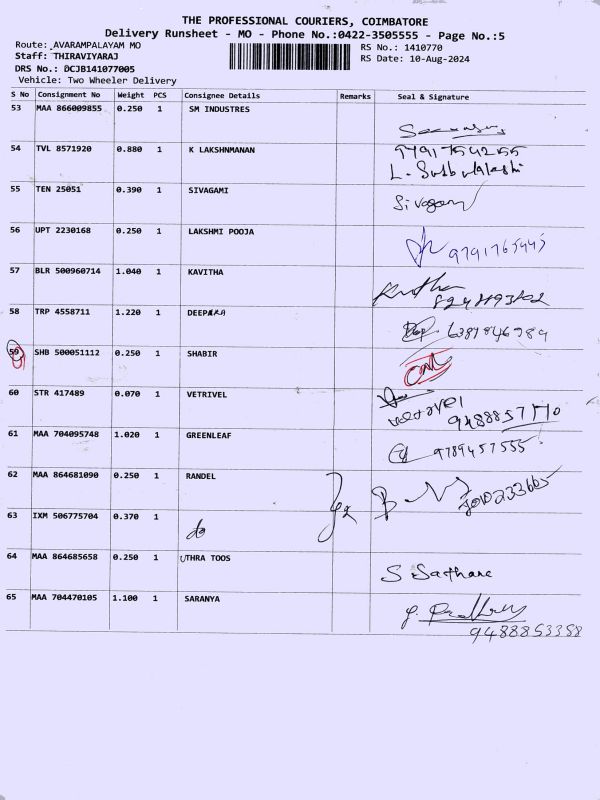 THE PROFESSIONAL COURIERS, COIMBATORE
Delivery Runsheet - MO - Phone No.:0422-3505555 - Page No.:5
Route: AVARAMPALAYAM MO
RS No.: 1410770
Staff: THIRAVIYARAJ
RS Date: 10-Aug-2024
DRS No.: DCJB141077005
Vehicle: Two Wheeler Delivery
S No Consignment No Weight PCS Consignee Details Remarks Seal & Signature
53 MAA 866009855 0.250 1 SM INDUSTRES
54 TVL 8571920 0.880 1 K LAKSHNMANAN
L. Subbulakshi
55 TEN 25051 0.390 1 SIVAGAMI Sivagami
56 UPT 2230168 0.250 1 LAKSHMI POOJA
57 BLR 500960714 1.040 1 KAVITHA
58 TRP 4558711 1.220 1 DEEPIKA
59 SHB 500051112 0.250 1 SHABIR
60 STR 417489 0.070 1 VETRIVEL vetrivel
61 MAA 704095748 1.020 1 GREENLEAF 9789457555
62 MAA 864681090 0.250 1 RANDEL
63 IXM 506775704 0.370 1 do
64 MAA 864685658 0.250 1 UTHRA TOOS
65 MAA 704470105 1.100 1 SARANYA
9488853358